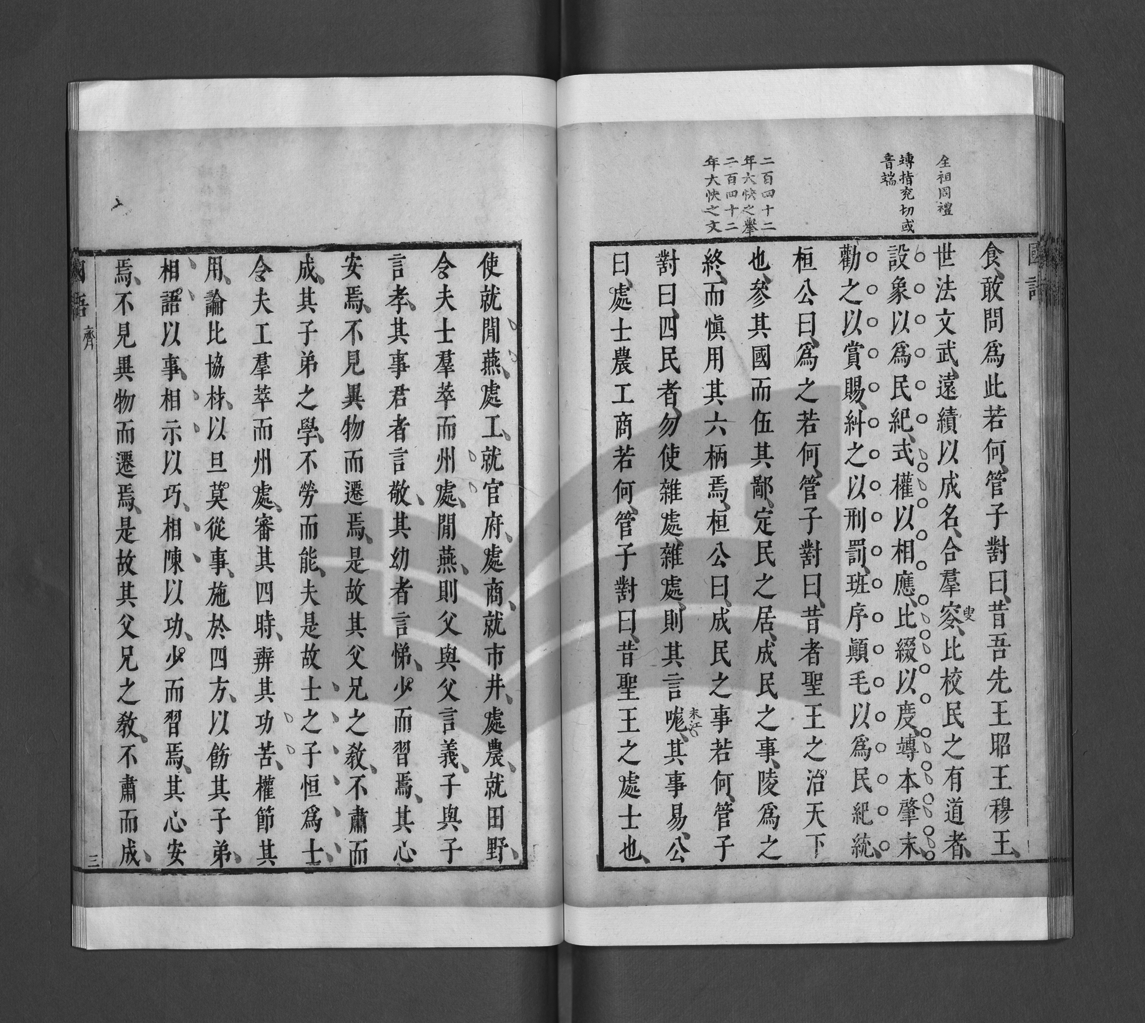 全祖周禮
竱指兖切或
音端
二百四十二
年大快之舉
二百四十二
年大快之文
國語
食、敢問爲此若何、管子對曰、昔吾先王昭王穆王、
世法文武、遠績以成名、合羣叜、比校民之有道者、
叟
設象以爲民紀、式權以相應、比綴以度、竱本肇末、
勸之以賞賜、糾之以刑罰、班序顚毛以爲民紀統、
桓公曰、爲之若何、管子對曰、昔者聖王之治天下
也、參其國而伍其鄙、定民之居、成民之事、陵爲之
終、而愼用其六柄焉、桓公曰、成民之事若何、管子
對曰、四民者、勿使雜處、雜處、則其言哤、其事易、公
末江
曰、處士農工商若何、管子對曰、昔聖王之處士也、
使就閒燕、處工、就官府、處商、就市井、處農、就田野、
令夫士羣萃而州處、閒燕、則父與父言義、子與子
言孝、其事君者言敬、其幼者言悌、少而習焉、其心
安焉、不見異物而遷焉、是故其父兄之敎、不肅而
成、其子弟之學、不勞而能、夫是故士之子恒爲士、
令夫工羣萃而州處、審其四時、辨其功苦、權節其
用、論比協材、以旦莫從事、施於四方、以飭其子弟、
相語以事、相示以巧、相陳以功、少而習焉、其心安
焉、不見異物而遷焉、是故其父兄之敎、不肅而成、
國語
齊
三